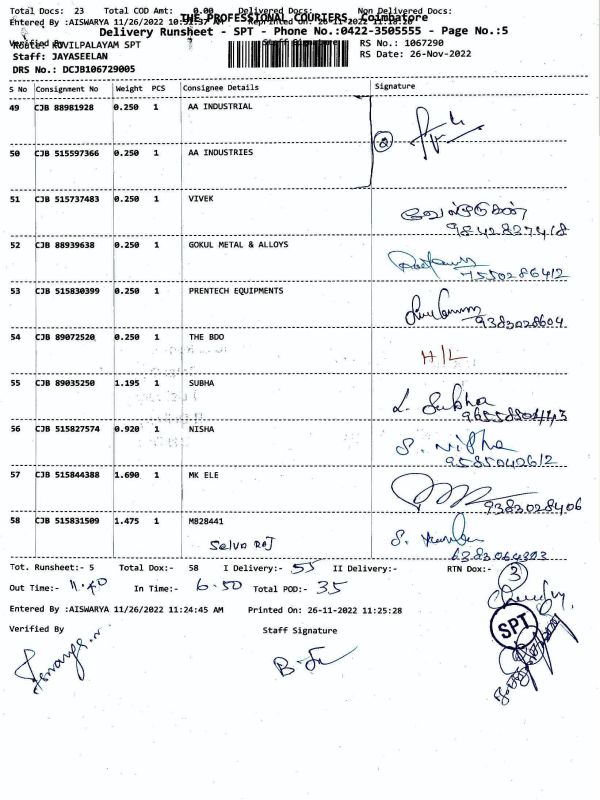 Total Docs: 23 Total COD Amt: 0.00 Delivered Docs: Non Delivered Docs:
Entered By :AISWARYA 11/26/2022
THE PROFESSIONAL COURIERS, Coimbatore
Delivery Runsheet - SPT - Phone No.:0422-3505555 - Page No.:5
Route: KOVILPALAYAM SPT Staff Signature RS No.: 1067290
Staff: JAYASEELAN RS Date: 26-Nov-2022
DRS No.: DCJB106729005
S No Consignment No Weight PCS Consignee Details Signature
49 CJB 88981928 0.250 1 AA INDUSTRIAL
2
50 CJB 515597366 0.250 1 AA INDUSTRIES
51 CJB 515737483 0.250 1 VIVEK
9842827418
52 CJB 88939638 0.250 1 GOKUL METAL & ALLOYS
7550286412
53 CJB 515830399 0.250 1 PRENTECH EQUIPMENTS
9383028604
54 CJB 89072520 0.250 1 THE BDO H/L
55 CJB 89035250 1.195 1 SUBHA L. Subha
56 CJB 515827574 0.920 1 NISHA S. Nisha
9585042612
57 CJB 515844388 1.690 1 MK ELE
9383028406
58 CJB 515831509 1.475 1 M828441
Selva Raj
6383064303
Tot. Runsheet:- 5 Total Dox:- 58 I Delivery:- 55 II Delivery:- RTN Dox:- 3
Out Time:- 11.40 In Time:- 6.50 Total POD:- 35
Entered By :AISWARYA 11/26/2022 11:24:45 AM Printed On: 26-11-2022 11:25:28
Verified By Staff Signature
SPT